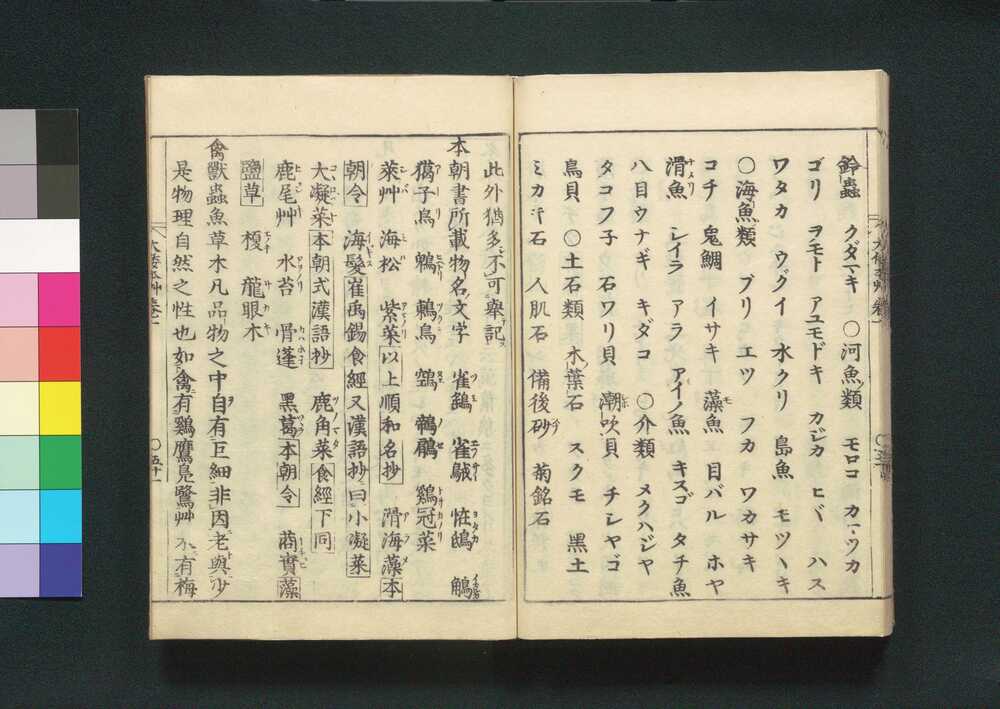 鈴蟲 クダマキ 〇河魚類 モロコ カマツカ
ゴリ ヲモト アユモドキ カジカ ヒバ ハス
ワタカ ウグイ 水クリ 島魚 モツ
〇海魚類 ブリ エツ フカ ワカサキ
コチ 鬼鯛 イサキ 藻魚 目バル ホヤ
滑魚 シイラ アラ アイノ魚 キスゴ タチ魚
八目ウナギ キダコ 〇介類 メクハジヤ
タコフ子 石ワリ貝 潮吹貝 チシヤゴ
鳥貝 〇土石類 木葉石 スクモ 黒土
ミカキ石 人肌石 備後砂 菊銘石
大倭本艸卷一
此外猶多不可擧記
本朝書所載物名ノ文字 雀鷂 雀 恠鴟
獦子鳥 鵯 鶫鳥 鵼 鶺鴒 鷄冠菜
萊艸 海松 紫菜以上順和名抄 滑海藻本
朝令 海髮崔禹錫食經又漢語抄曰小凝菜
大凝菜本朝式漢語抄 鹿角菜食經下同
鹿尾艸 水苔 骨蓬 黑葛本朝令 蔏實藻
鹽草 榎 龍眼木
禽獸蟲魚草木凡品物之中自有巨細非因老與少
是物理自然之性也如禽有鷄鷹鳧鷺艸木有梅
大倭本艸卷一
〇五十一